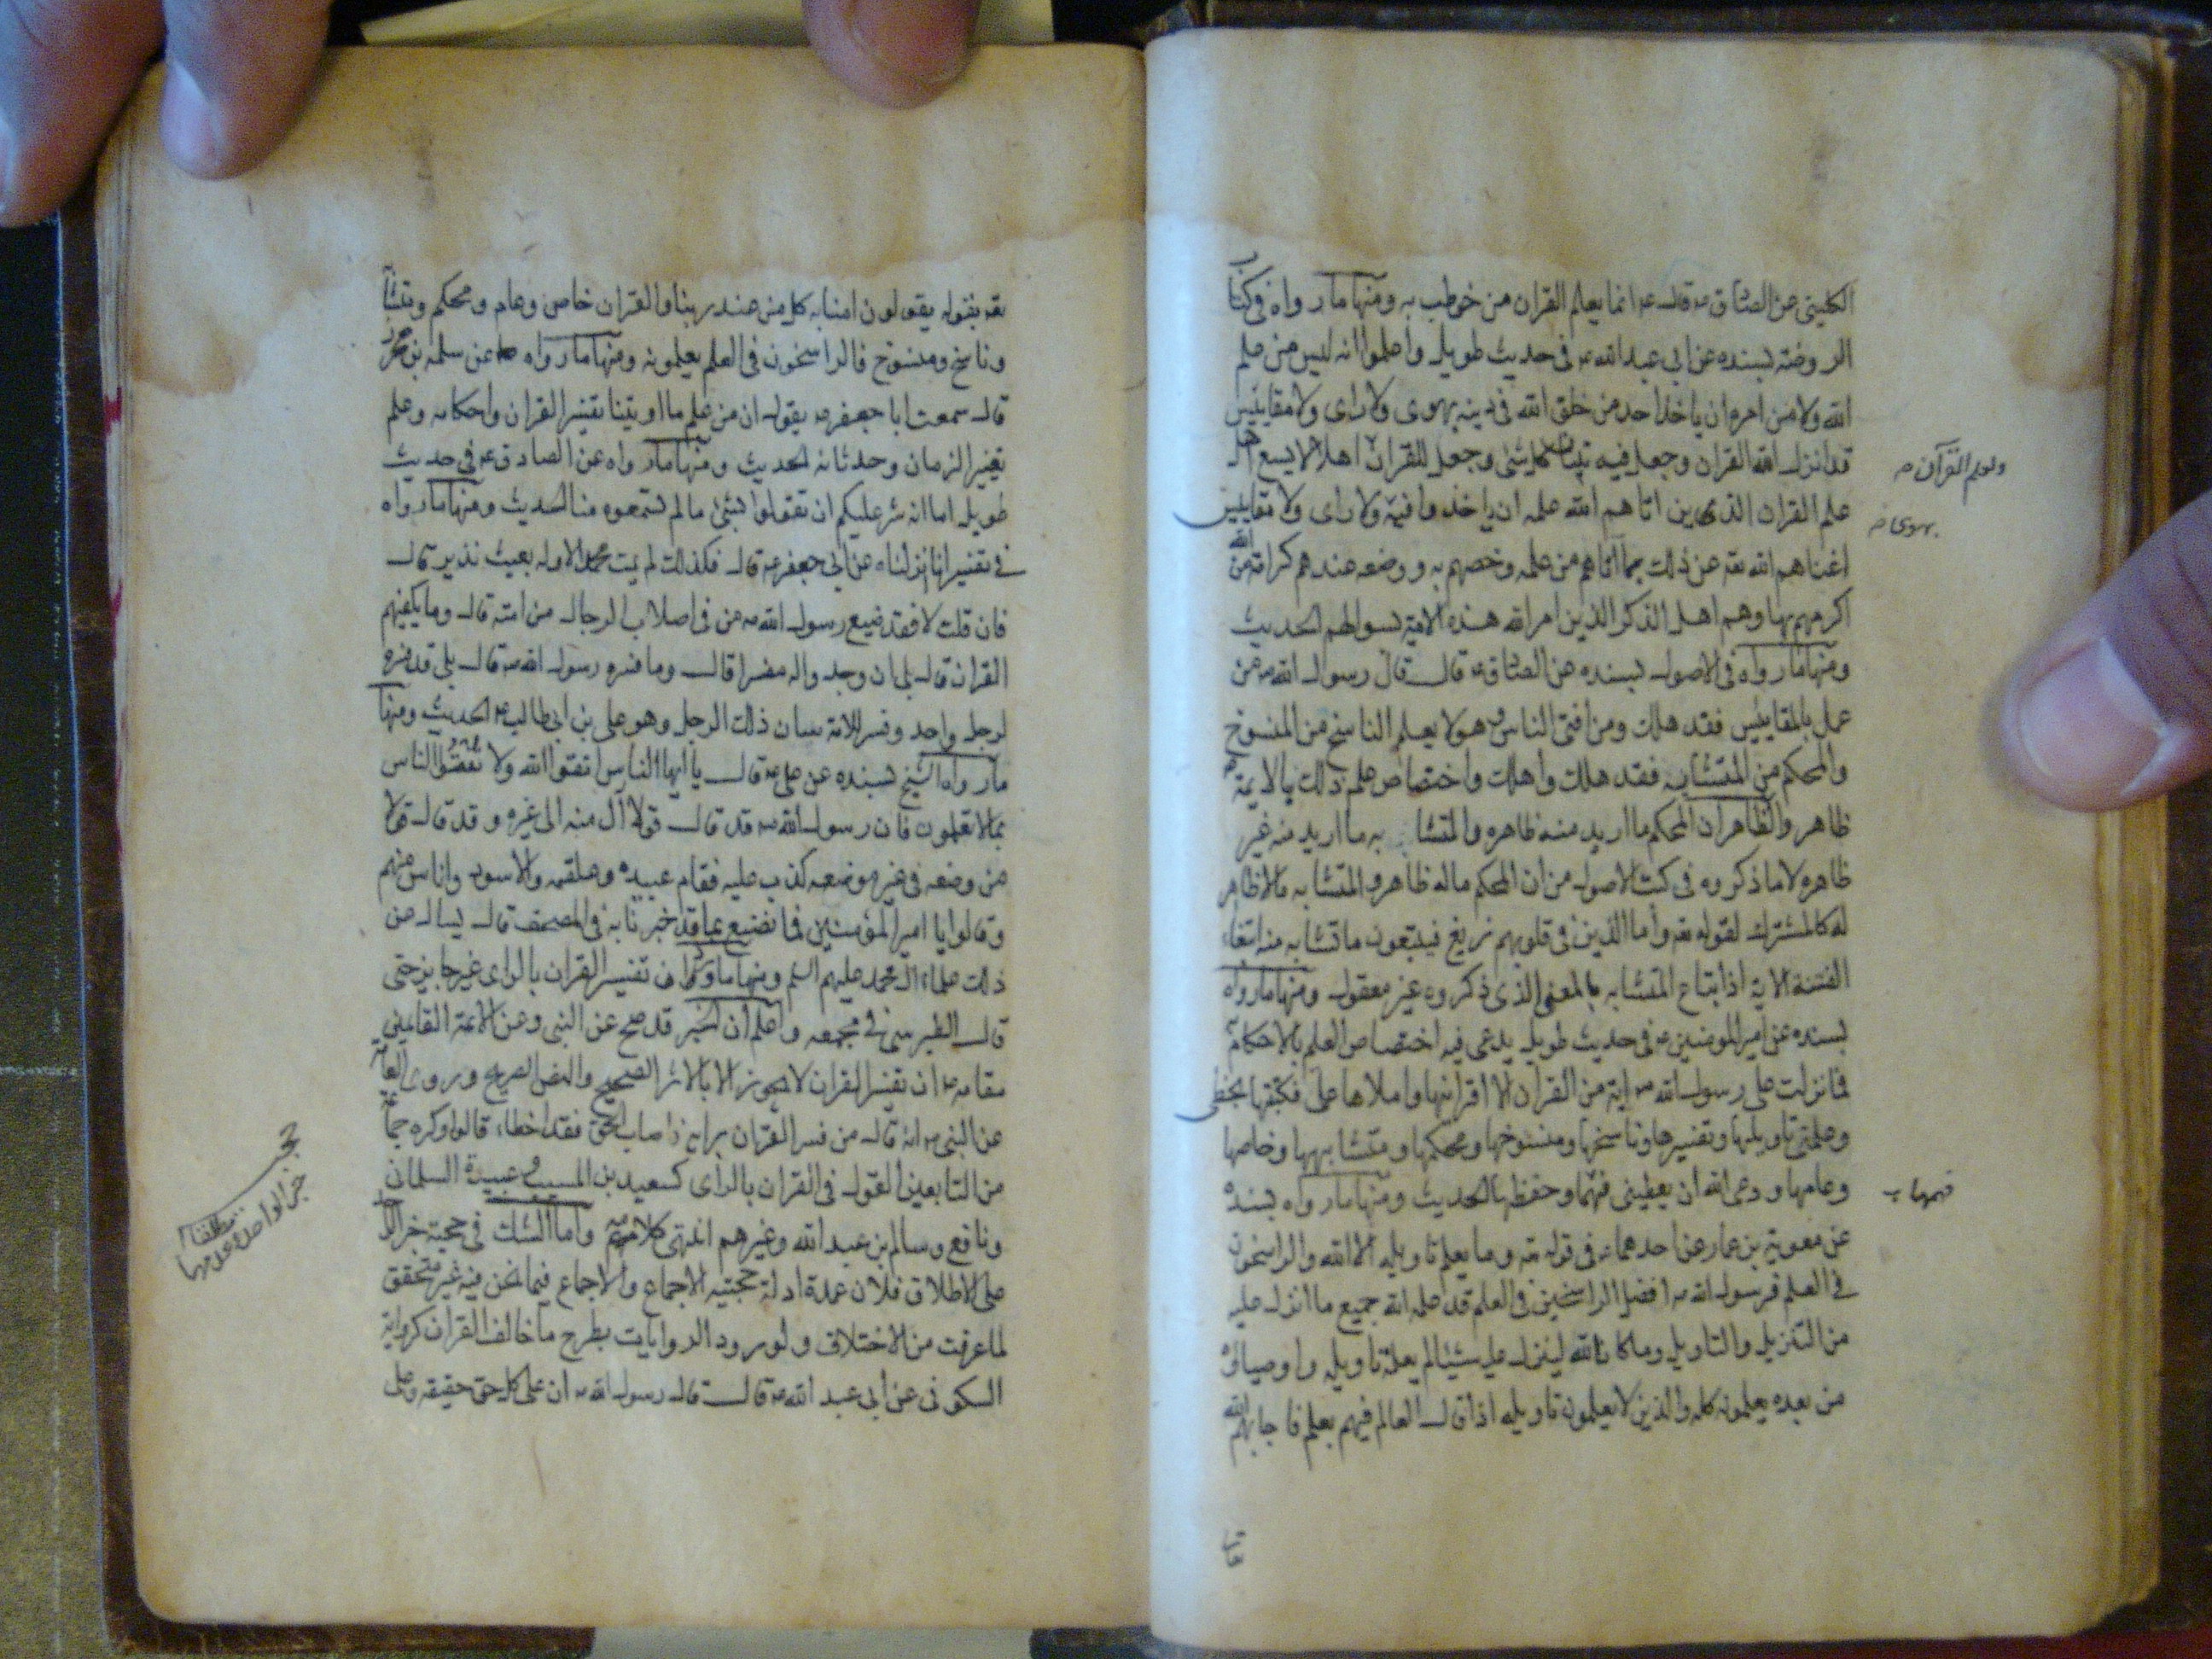 الكلينى عن الصادق ع قال ع انما يعلم القران من خوطب به ومنها ما رواه فى كتاب
الروضة بسنده عن ابى عبد الله ع فى حديث طويل واعلموا انه ليس من علم
الله ولا من امره ان ياخذ احد من خلق الله فى دينه بهوى ولا راى ولا مقاييس
قد انزل الله القران وجعل فيه تبيان كل شئ وجعل للقران اهلا لا يسع اهل
ولعلم القرآن
علم القران الذين اتاهم الله علمه ان ياخذوا فيه ولا راى ولا مقاييس
بهوى
اغناهم الله تعه عن ذلك بما اتاهم من علمه وخصهم به ووضعه عندهم كرامة من الله
اكرمهم بها وهم اهل الذكر الذين امر الله هذه الامة بسوالهم الحديث
ومنها ما رواه فى الاصول بسنده عن الصادق ع قال قال رسول الله ص من
عمل بالمقاييس فقد هلك ومن افتى الناس وهو لا يعلم الناسخ من المنسوخ
والمحكم من المتشابه فقد هلك واهلك واختصاص علم ذلك بالايمة
ظاهر والظاهر ان المحكم ما اريد منه ظاهره والمتشا به ما اريد منه غير
ظاهره لا ما ذكروه فى كتب الاصول من ان المحكم ماله ظاهر والمتشابه مالا ظاهر
له كالمشترك لقوله تعه واما الذين فى قلوبهم زيغ فيتبعون ما تشابه منه ابتغاء
الفتنة الاية اذ ابتاع المتشابه بالمعنى الذى ذكروه غير معقول ومنها ما رواه
بسنده عن امير المومنين ع فى حديث طويل يدعى فيه اختصاص العلم بالاحكام
فما نزلت على رسول الله ص اية من القران الا اقرانيها واملاها على فكتبتها بخطى
وعلمنى تاويلها وتفسيرها وناسخها ومنسوخها ومحكمها ومتشابهها وخاصها
وعامها ودعى الله ان يعطينى فهما وحفظها الحديث ومنها ما رواه بسنده
فهمها
عن معوية بن عمار عن احدهما ع فى قوله تعه وما يعلم تاويله الا الله والراسخون
فى العلم فرسول الله ص افضل الراسخين فى العلم قد علمه الله جميع ما انزل عليه
من التنزيل والتاويل وما كان الله لينزل عليه شيئا لم يعلمه تاويله واوصياؤه
من بعده يعلمونه كله والذين لا يعلمون تاويله اذا قال العالم فيهم بعلم فاجابهم الله
تعه بقوله يقولون امنا به كل من عند ربنا والقران خاص وعام ومحكم ومتشابه
وناسخ ومنسوخ فالراسخون فى العلم يعلمونه ومنها ما رواه عن سلمه بن محرز
قال سمعت ابا جعفر ع يقول ان من علم ما اوتينا تفسير القران واحكامه وعلم
تغيير الزمان وحدثانه الحديث ومنها ما رواه عن الصادق ع فى حديث
طويل اما انه شر عليكم ان تقولوا بشئ ما لم تسمعوه منا الحديث ومنها ما رواه
فى تفسير انا انزلناه عن ابى جعفر ع قال فكذلك لم يمت محمد الا وله بعيث نذير قال
فان قلت لا فقد ضيع رسول الله ص من فى اصلاب الرجال من امته قال وما يكفيهم
القران قال بلى ان وجدوا له مفسرا قال وما فسره رسول الله ص قال بلى قد فسره
لرجل واحد وفسر للامة شان ذلك الرجل وهو على بن ابى طالب ع الحديث ومنها
ما رواه الشيخ بسنده عن على ع قال يا ايها الناس اتقوا الله ولا تفتوا الناس
بما لا تعلمون فان رسول الله ص قد قال قولا آل منه الى غيره وقد قال قولا
من وضعه فى غير موضعه كذب عليه فقام عبيده وعلقمه والاسود واناس منهم
وقالوا يا امير المؤمنين فما نصنع بما قد خبرنا به فى المصحف قال يسال عن
ذلك علماء ال محمد عليهم السلم ومنها ما ورد ان تفسير القران بالراى غير جايز حتى
قال الطبرسى فى مجمعه واعلم ان الخبر قد صح عن النبى وعن الائمة القائمين
مقامه ع ان تفسير القران لا يجوز الا بالاثر الصحيح والنص الصريح وروى العامة
عن النبى ص انه قال من فسر القران برايه فاصاب الحق فقد اخطاء قالوا وكره جماعة
من التابعين القول فى القران بالراى كسعيد بن المسيب وعبيدة السلمانى
ونافع وسالم بن عبد الله وغيرهم انتهى كلامهم واما الشك فى حجية خبر الواحد
على الاطلاق فلان عمدة ادلة حجتيه الاجماع والاجماع فيما نحن فيه غير متحقق
لما عرفت من الاختلاف ولورود الروايات بطرح ما خالف القران كرواية
السكونى عن ابى عبد الله ع قال قال رسول الله ص ان على كل حق حقيقه وعلى
خبر الواحد